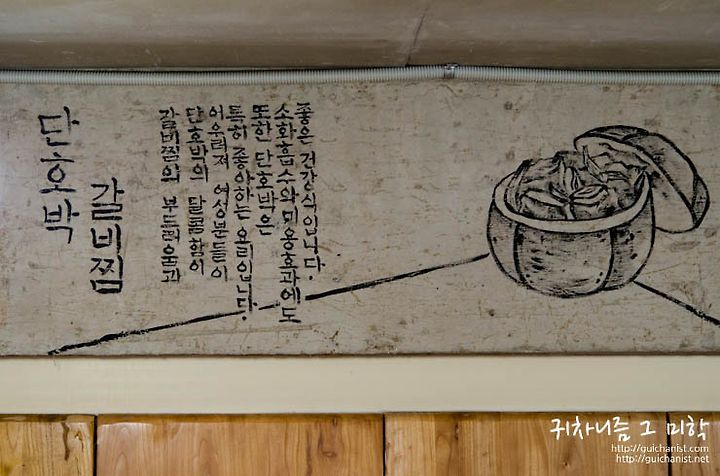 단호박
갈비찜
갈비찜의 부드러움과
단호박의 달콤함이
어우러져 여성분들이
특히 좋아하는 요리입니다.
또한 단호박은
소화흡수와 미용효과에도
좋은 건강식입니다.
귀차니즘 그 미학
http://guichanist.com
http://guichanist.net